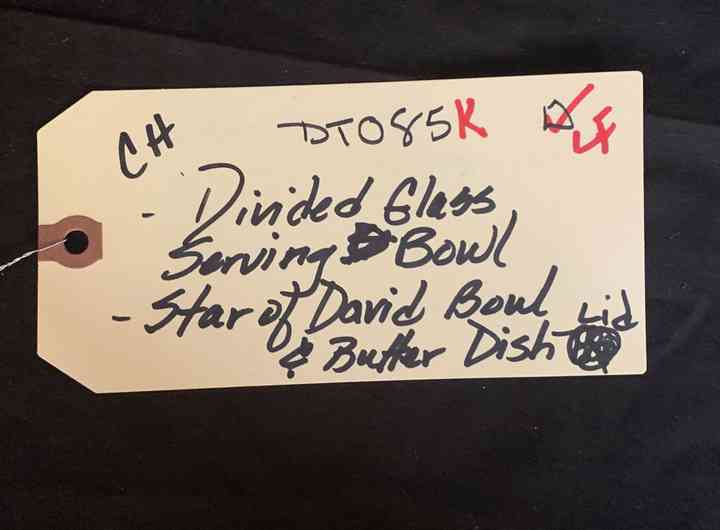 CH DT085K LF
- Divided Glass
Serving Bowl
- Star of David Bowl
& Butter Dish Lid